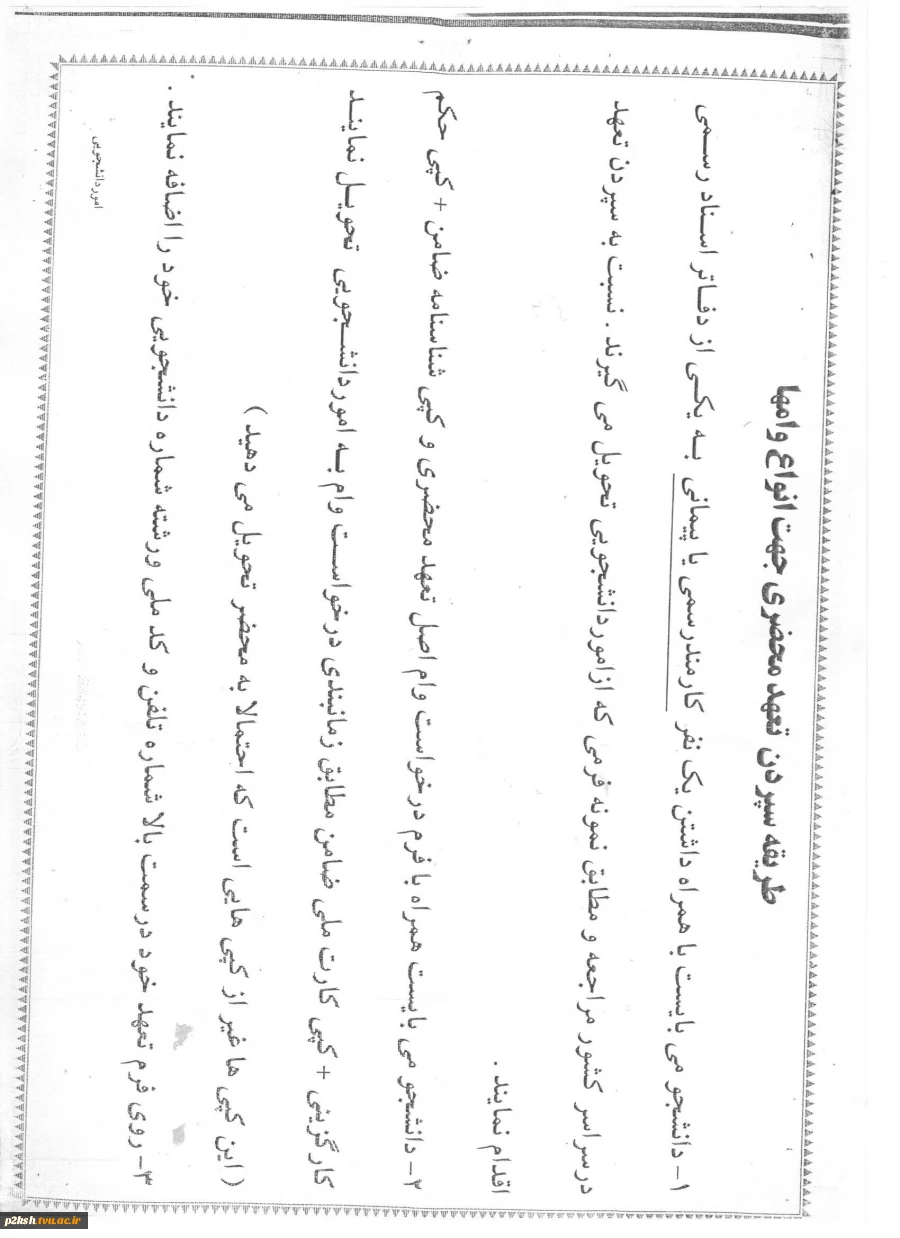 طریقه سپردن تعهد محضری جهت انواع وامها
۱- دانشجو می بایست با همراه داشتن یک نفر کارمند رسمی یا پیمانی به یکی از دفاتر اسناد رسمی
در سراسر کشور مراجعه و مطابق نمونه فرمی که از امور دانشجویی تحویل می گیرند . نسبت به سپردن تعهد
اقدام نمایند .
۲- دانشجو می بایست همراه با فرم درخواست وام اصل تعهد محضری و کپی شناسنامه ضامن + کپی حکم
کارگزینی + کپی کارت ملی ضامن مطابق زمانبندی درخواست وام به امور دانشجویی تحویل نمایند
( این کپی ها غیر از کپی هایی است که احتمالا به محضر تحویل می دهید )
۳- روی فرم تعهد خود در سمت بالا شماره تلفن و کد ملی و رشته شماره دانشجویی خود را اضافه نمایند .
امور دانشجویی
p2ksh.tvu.ac.ir